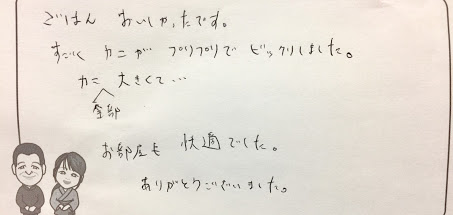 ごはん おいしかったです。
すごく カニが プリプリで ビックリしました。
カニ 大きくて…
全部
お部屋も 快適でした。
ありがとうございました。